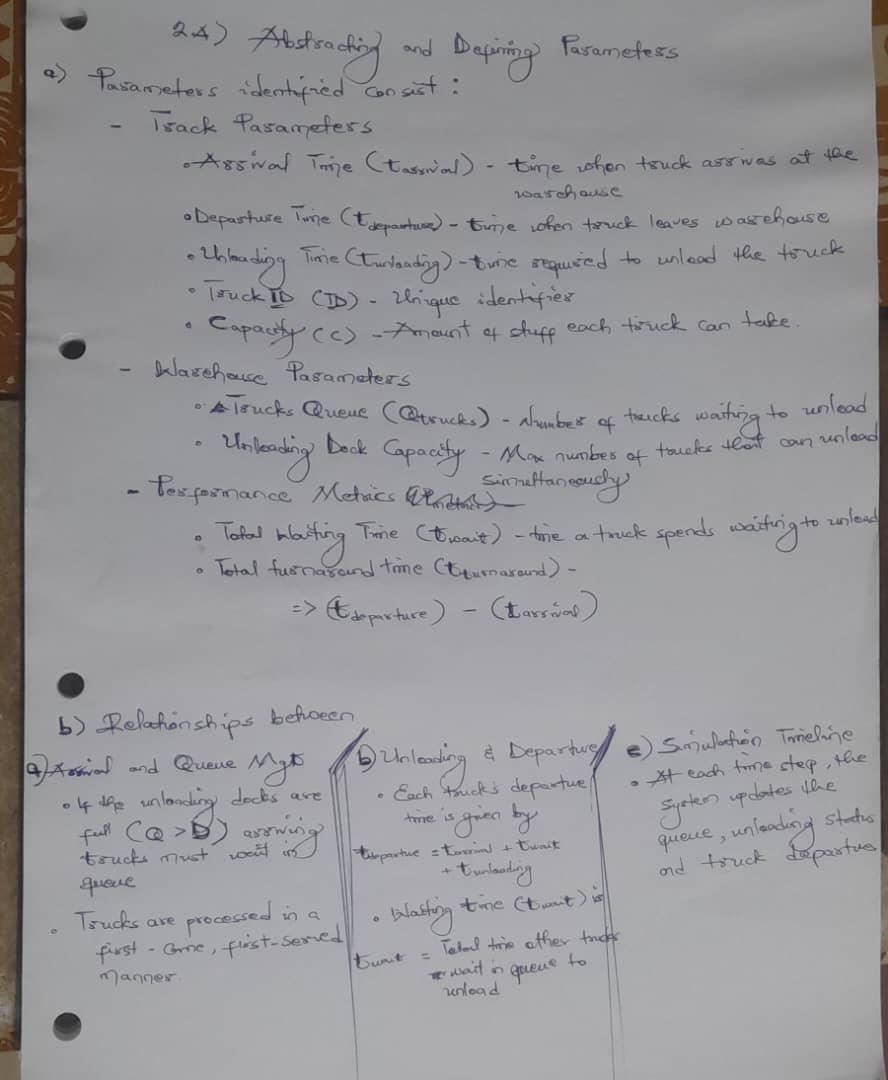 2A) Abstracting and Defining Parameters
a) Parameters identified consist :
- Track Parameters
• Arrival Time (tarrival) - time when truck arrives at the
warehouse
• Departure Time (tdeparture) - time when truck leaves warehouse
• Unloading Time (tunloading) - time required to unload the truck
• Truck ID (ID) - Unique identifier
• Capacity (C) - Amount of stuff each truck can take.
- Warehouse Parameters
• Trucks Queue (Qtrucks) - Number of trucks waiting to unload
• Unloading Dock Capacity - Max number of trucks that can unload
simultaneously
- Performance Metrics
• Total Waiting Time (twait) - time a truck spends waiting to unload
• Total turnaround time (tturnaround) -
=> (tdeparture) - (tarrival)
b) Relationships between
a) Arrival and Queue Mgt
• If the unloading docks are
full (Q > D) arriving
trucks must wait in
queue
• Trucks are processed in a
first - come, first-served
manner.
b) Unloading & Departure
• Each truck's departure
time is given by
tdeparture = tarrival + twait
+ tunloading
• Waiting time (twait) is
twait = Total time other trucks
wait in queue to
unload
c) Simulation Timeline
• At each time step, the
system updates the
queue, unloading status
and truck departure